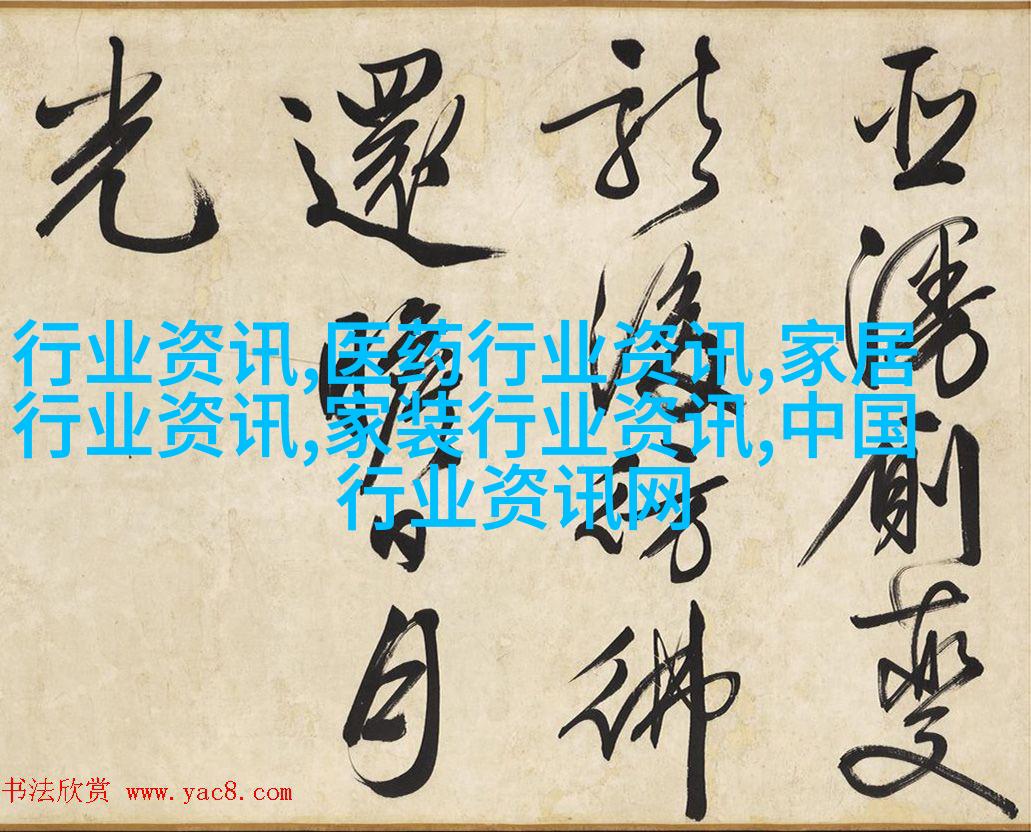 廁夔
龍後彷彿
還
光
行业资讯,医药行业资讯,家居
行业资讯,家装行业资讯,中国
行业资讯网
书法欣赏 www.yac8.com